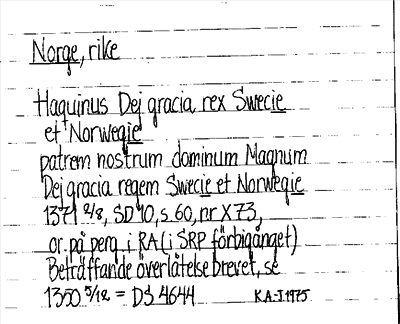 Norge, rike
Haquinus Dej gracia rex Swecie
et Norwegie
patrem nostrum dominum Magnum
Dej gracia regem Swecie et Norwegie
1371 2/8, SD 10, s. 60, nr X 73,
or. på perg. i RA (i SRP förbigånget)
Beträffande överlåtelsebrevet, se
1350 5/12 = DS 4644 K.A-I 1975